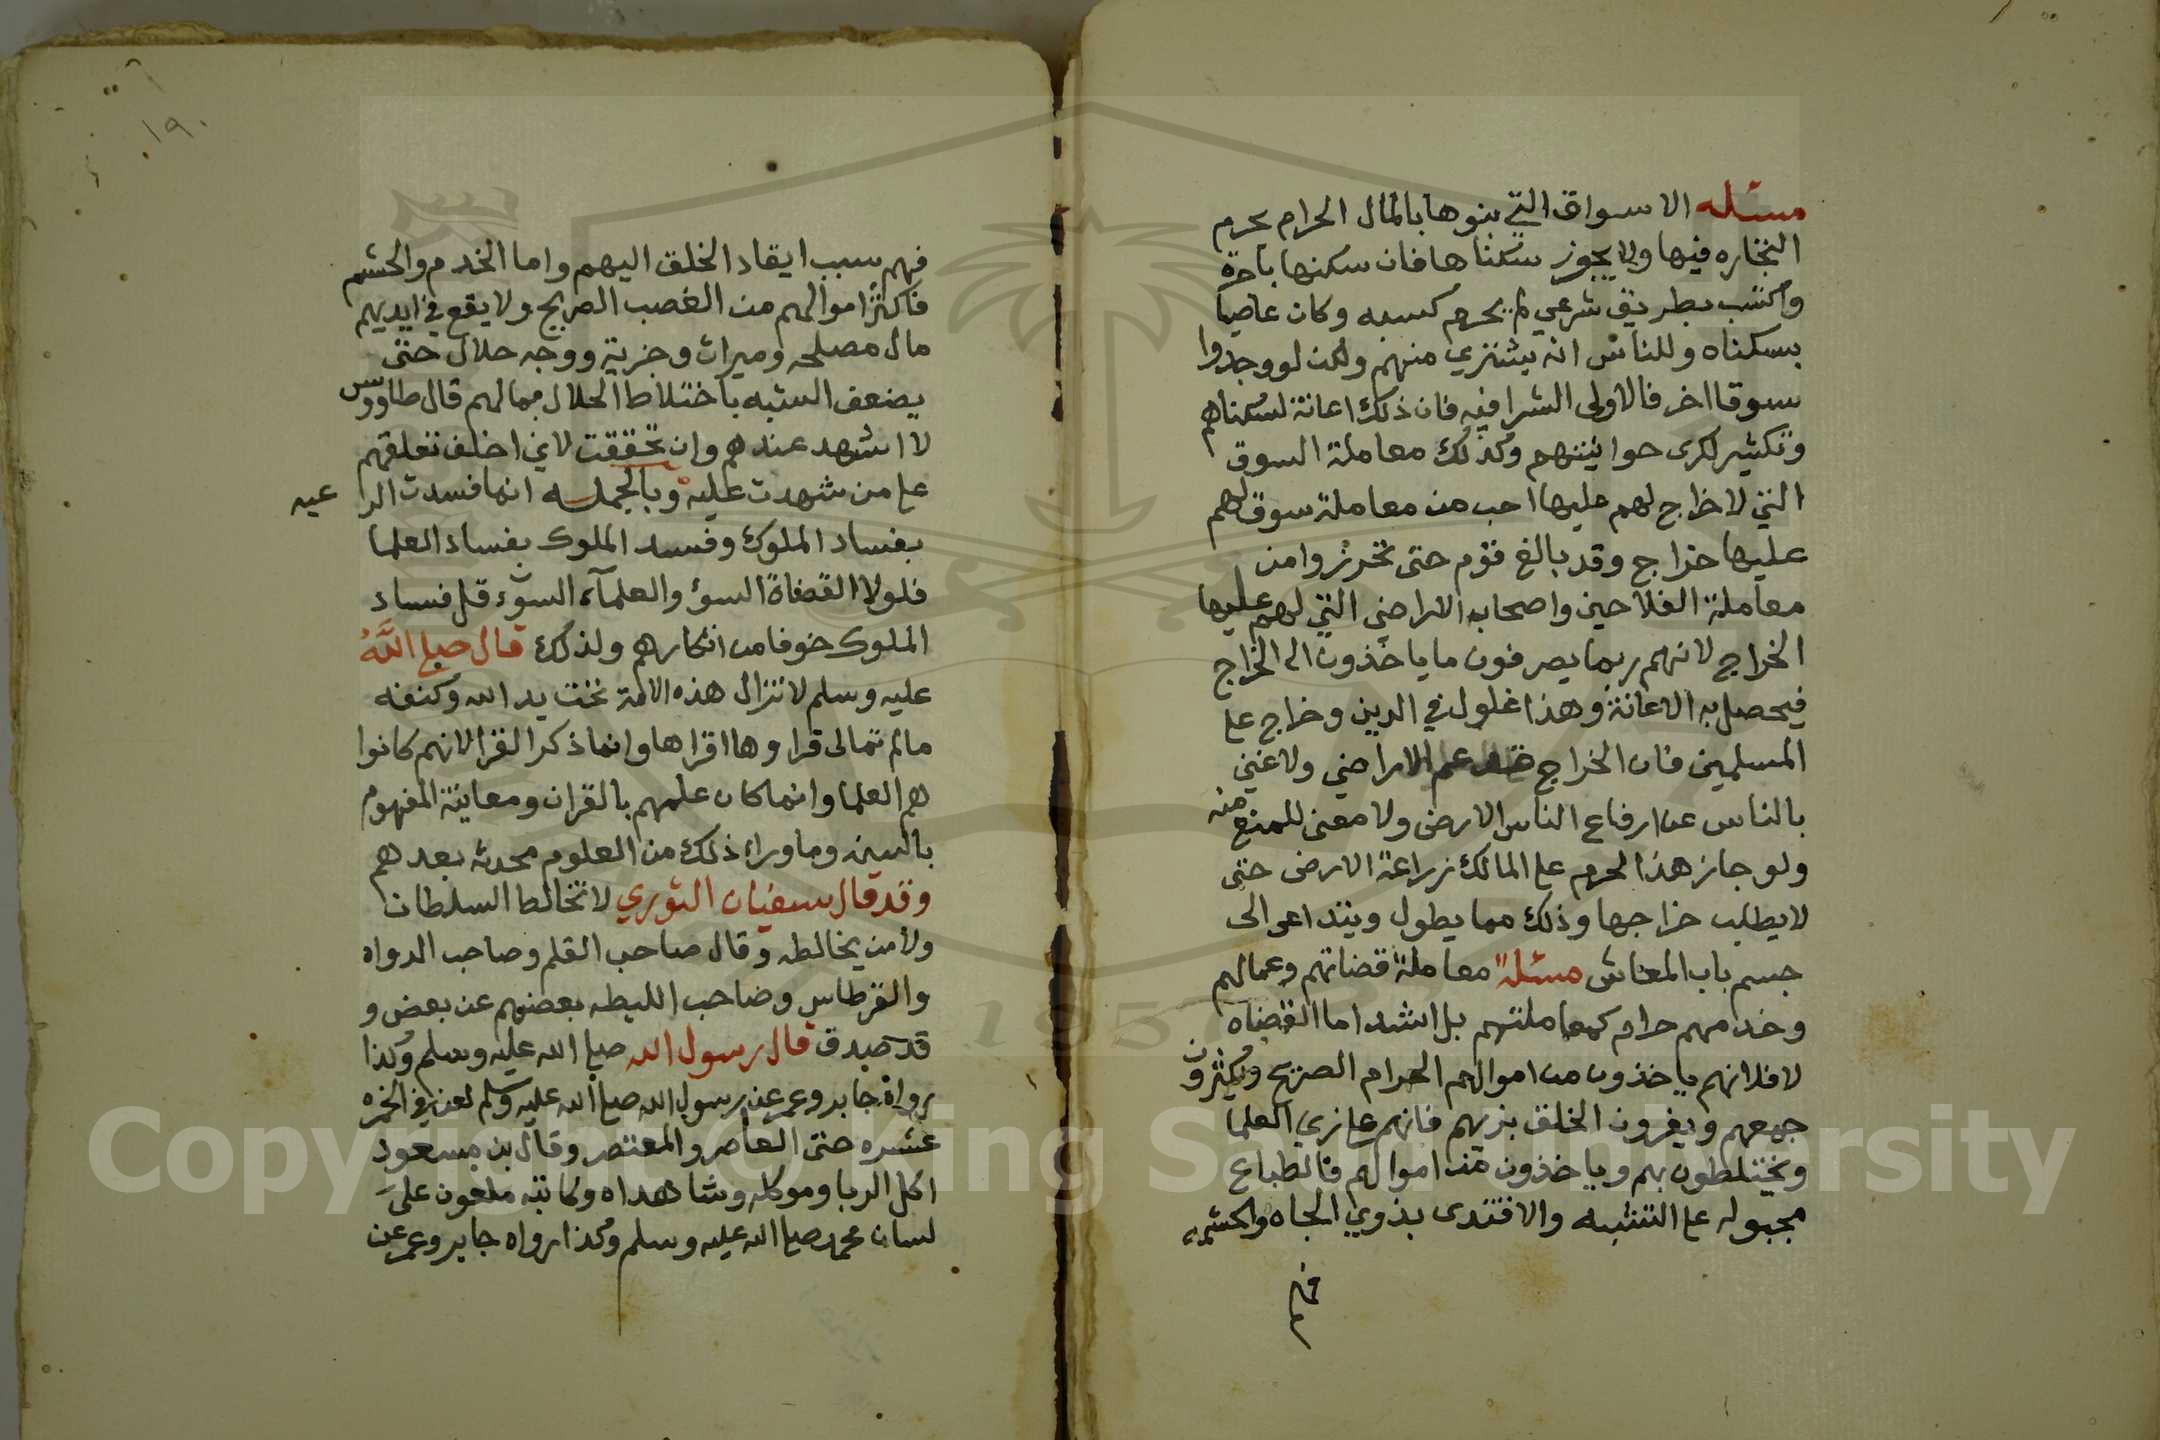 مسئله الاسواق التي بنوها بالمال الحرام يحرم
التجاره فيها ولا يجوز سكناها فان سكنها باجرة
واكتسب بطريق شرعي لم يحرم كسبه وكان عاصيا
بسكناه وللناس ان يشتري منهم ولكن لو وجدوا
سوقا اخر فالاولى الشرا فيه فان ذلك اعانة لسكناهم
وتكثير لكرى حوانيتهم وكذلك معاملة السوق
التي لا خراج لهم عليها احب من معاملة سوق لهم
عليها خراج وقد بالغ قوم حتى تحرزوا من
معاملة الفلاحين واصحاب الاراضي التي لهم عليها
الخراج لانهم ربما يصرفون ما ياخذون الى الخراج
فيحصل به الاعانة وهذا غلول في الدين وخراج على
المسلمين فان الخراج قد عم الاراضي ولا غني
بالناس عن ارفاع الناس الارض ولا معنى للمنع منه
ولو جاز هذا لحرم على المالك زراعة الارض حتى
لا يطلب خراجها وذلك مما يطول ويتداعى الى
حسم باب المعاش مسئلة معاملة قضاتهم وعمالهم
وخدامهم حرام كمعاملتهم بل اشد اما القضاه
لا فلانهم ياخذون من اموالهم الحرام الصريح ويكثرون
جمعهم ويغرون الخلق بزيهم فانهم على زي العلما
ويختلطون بهم وياخذون من اموالهم فالطباع
مجبوله على التشبه والاقتدى بذوي الجاه والحشمه
فهم
١٩٠
فهم سبب ايقاد الخلق اليهم واما الخدم والحشم
فاكثر اموالهم من الغصب الصريح ولا يقع في ايديهم
مال مصلحه وميراث وجزية ووجه حلال حتى
يضعف الشبه باختلاط الحلال بمالهم قال طاووس
لا اشهد عندهم وان تحققت لاني اخاف تعلقهم
على من شهدت عليه وبالجمله انما فسدت الر عيه
بفساد الملوك وفسد الملوك بفساد العلما
فلولا القضاة السوء والعلمآء السوّء قل فساد
الملوك خوفا من انكارهم ولذلك قال صلى اللَّهُ
عليه وسلم لا تزال هذه الامة تحت يد الله وكنفه
مالم تمالى قراوها اقراها وانما ذكر القرا لانهم كانوا
هم العلما وانما كان علمهم بالقران ومعاينة المفهوم
بالسنه وما وراء ذلك من العلوم محدثه بعدهم
وقد قال سفيان الثوري لا تخالط السلطان
ولا من يخالطه وقال صاحب القلم وصاحب الدواه
والقرطاس وصاحب الليطه بعضهم عن بعض و
قد صدق قال رسول الله صلى الله عليه وسلم وكذا
رواه جابر وعمر عن رسول الله صلى الله عليه وسلم لعن في الخمره
عشره حتى العاصر والمعتصر وقال بن مسعود
اكل الربا وموكله وشاهداه وكاتبه ملعون علىَ
لسان محمد صلى الله عليه وسلم وكذا رواه جابر وعمر عن
1957
Copyright © King Saud University